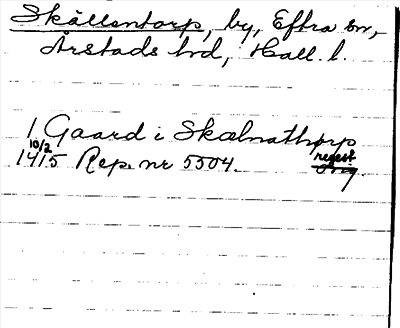 Skällentorp, by, Eftra sn,
Årstads hd, Hall. l.
1 Gaard i Skælnathorp
10/2 1415 Rep. nr 5504. regest
orig.